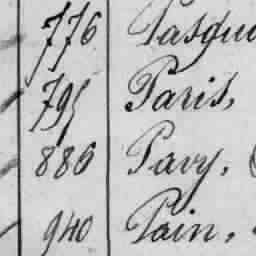 776 Pasqu
795 Paris,
886 Pavy,
940 Pain,